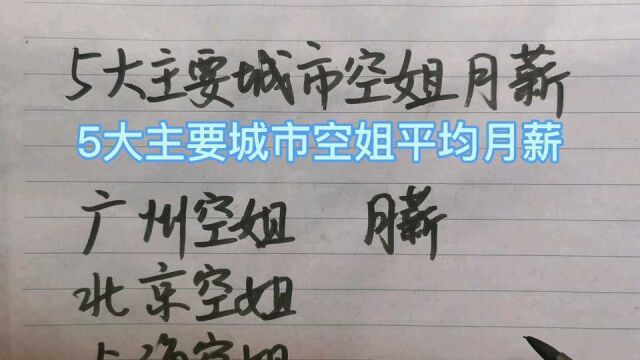 5大主要城市空姐月薪
5大主要城市空姐平均月薪
广州空姐 月薪
北京空姐
上海空姐